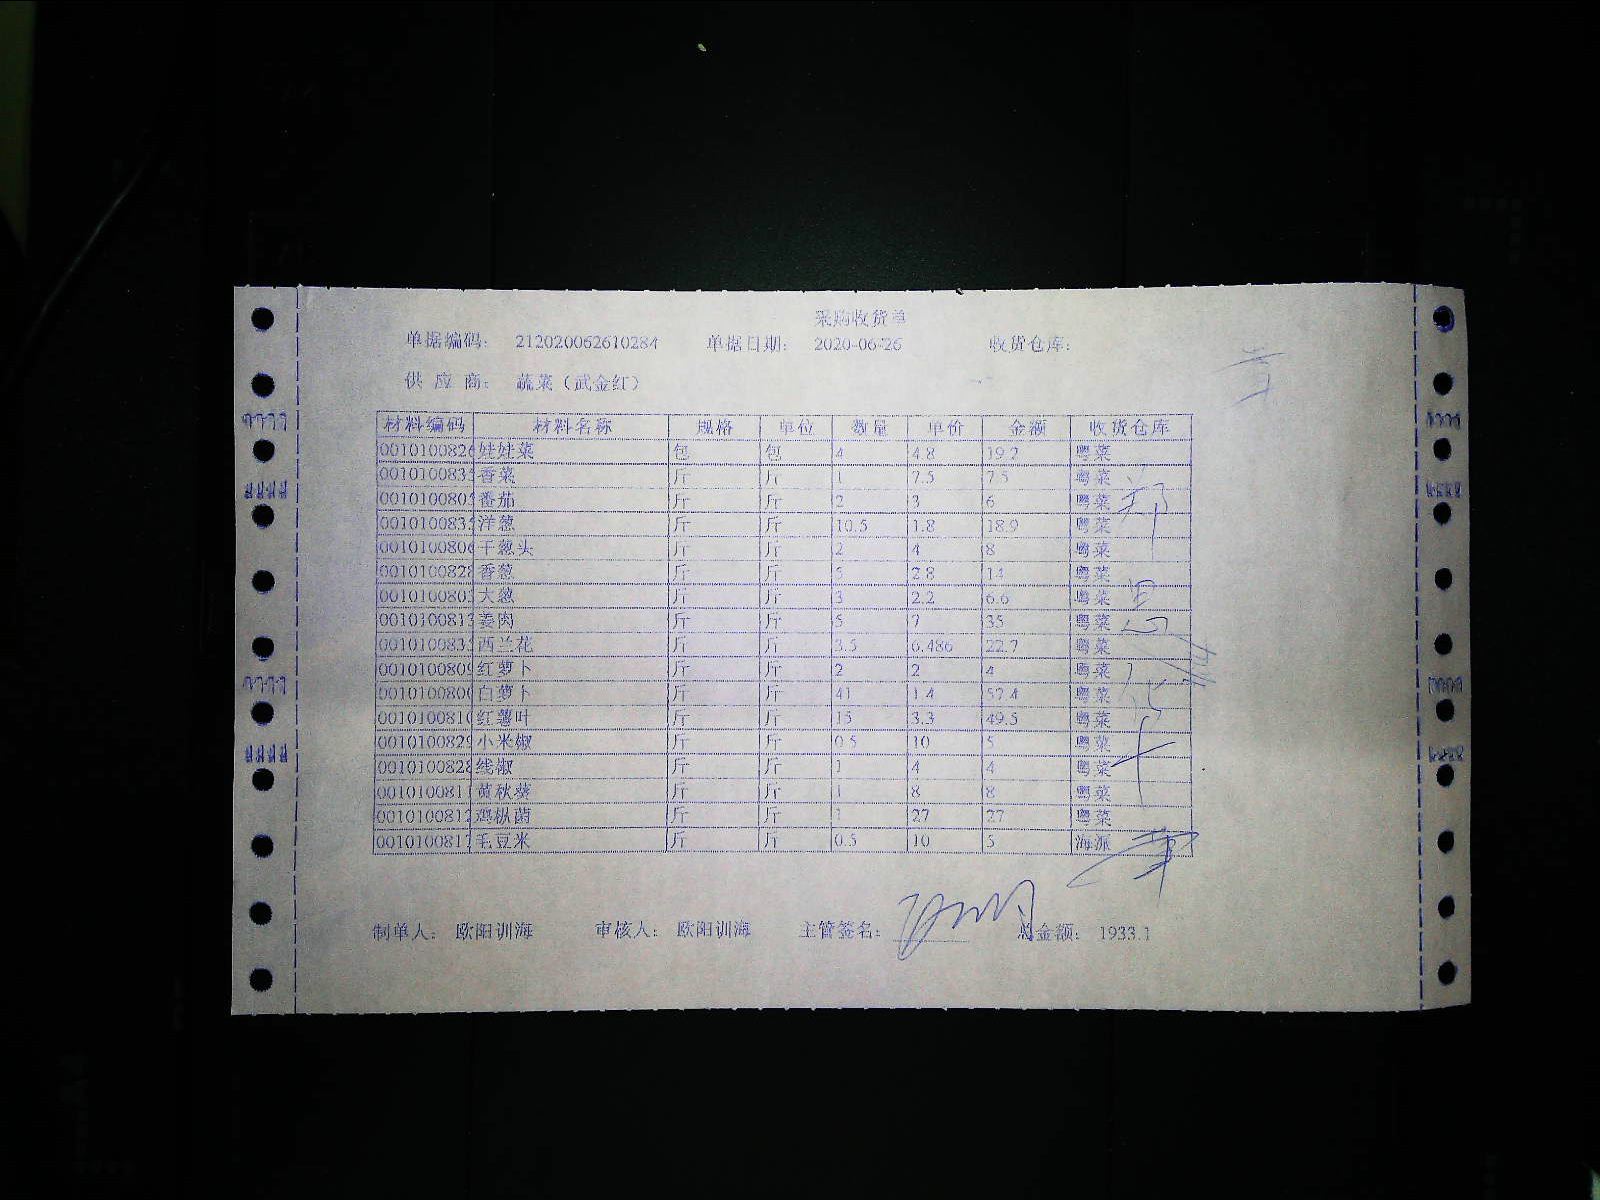 采购收货单
单据编码: 212020062610284 单据日期: 2020-06-26 收货仓库:
供 应 商: 蔬菜（武金红）
材料编码 材料名称 规格 单位 数量 单价 金额 收货仓库
0010100826 娃娃菜 包 包 4 4.8 19.2 粤菜
001010083 香菜 斤 斤 1 7.5 7.5 粤菜
001010080 番茄 斤 斤 2 3 6 粤菜
001010083 洋葱 斤 斤 10.5 1.8 18.9 粤菜
0010100806 干葱头 斤 斤 2 4 8 粤菜
0010100828 香葱 斤 斤 5 2.8 14 粤菜
001010080 大葱 斤 斤 3 2.2 6.6 粤菜
001010081 姜肉 斤 斤 5 7 35 粤菜
001010083 西兰花 斤 斤 3.5 6.486 22.7 粤菜
0010100809 红萝卜 斤 斤 2 2 4 粤菜
001010080 白萝卜 斤 斤 41 1.4 57.4 粤菜
001010081 红薯叶 斤 斤 15 3.3 49.5 粤菜
001010082 小米椒 斤 斤 0.5 10 5 粤菜
0010100828 线椒 斤 斤 1 4 4 粤菜
001010081 黄秋葵 斤 斤 1 8 8 粤菜
001010081 鸡枞菌 斤 斤 1 27 27 粤菜
001010081 毛豆米 斤 斤 0.5 10 5 海派
制单人: 欧阳训海 审核人: 欧阳训海 主管签名: 总金额: 1933.1